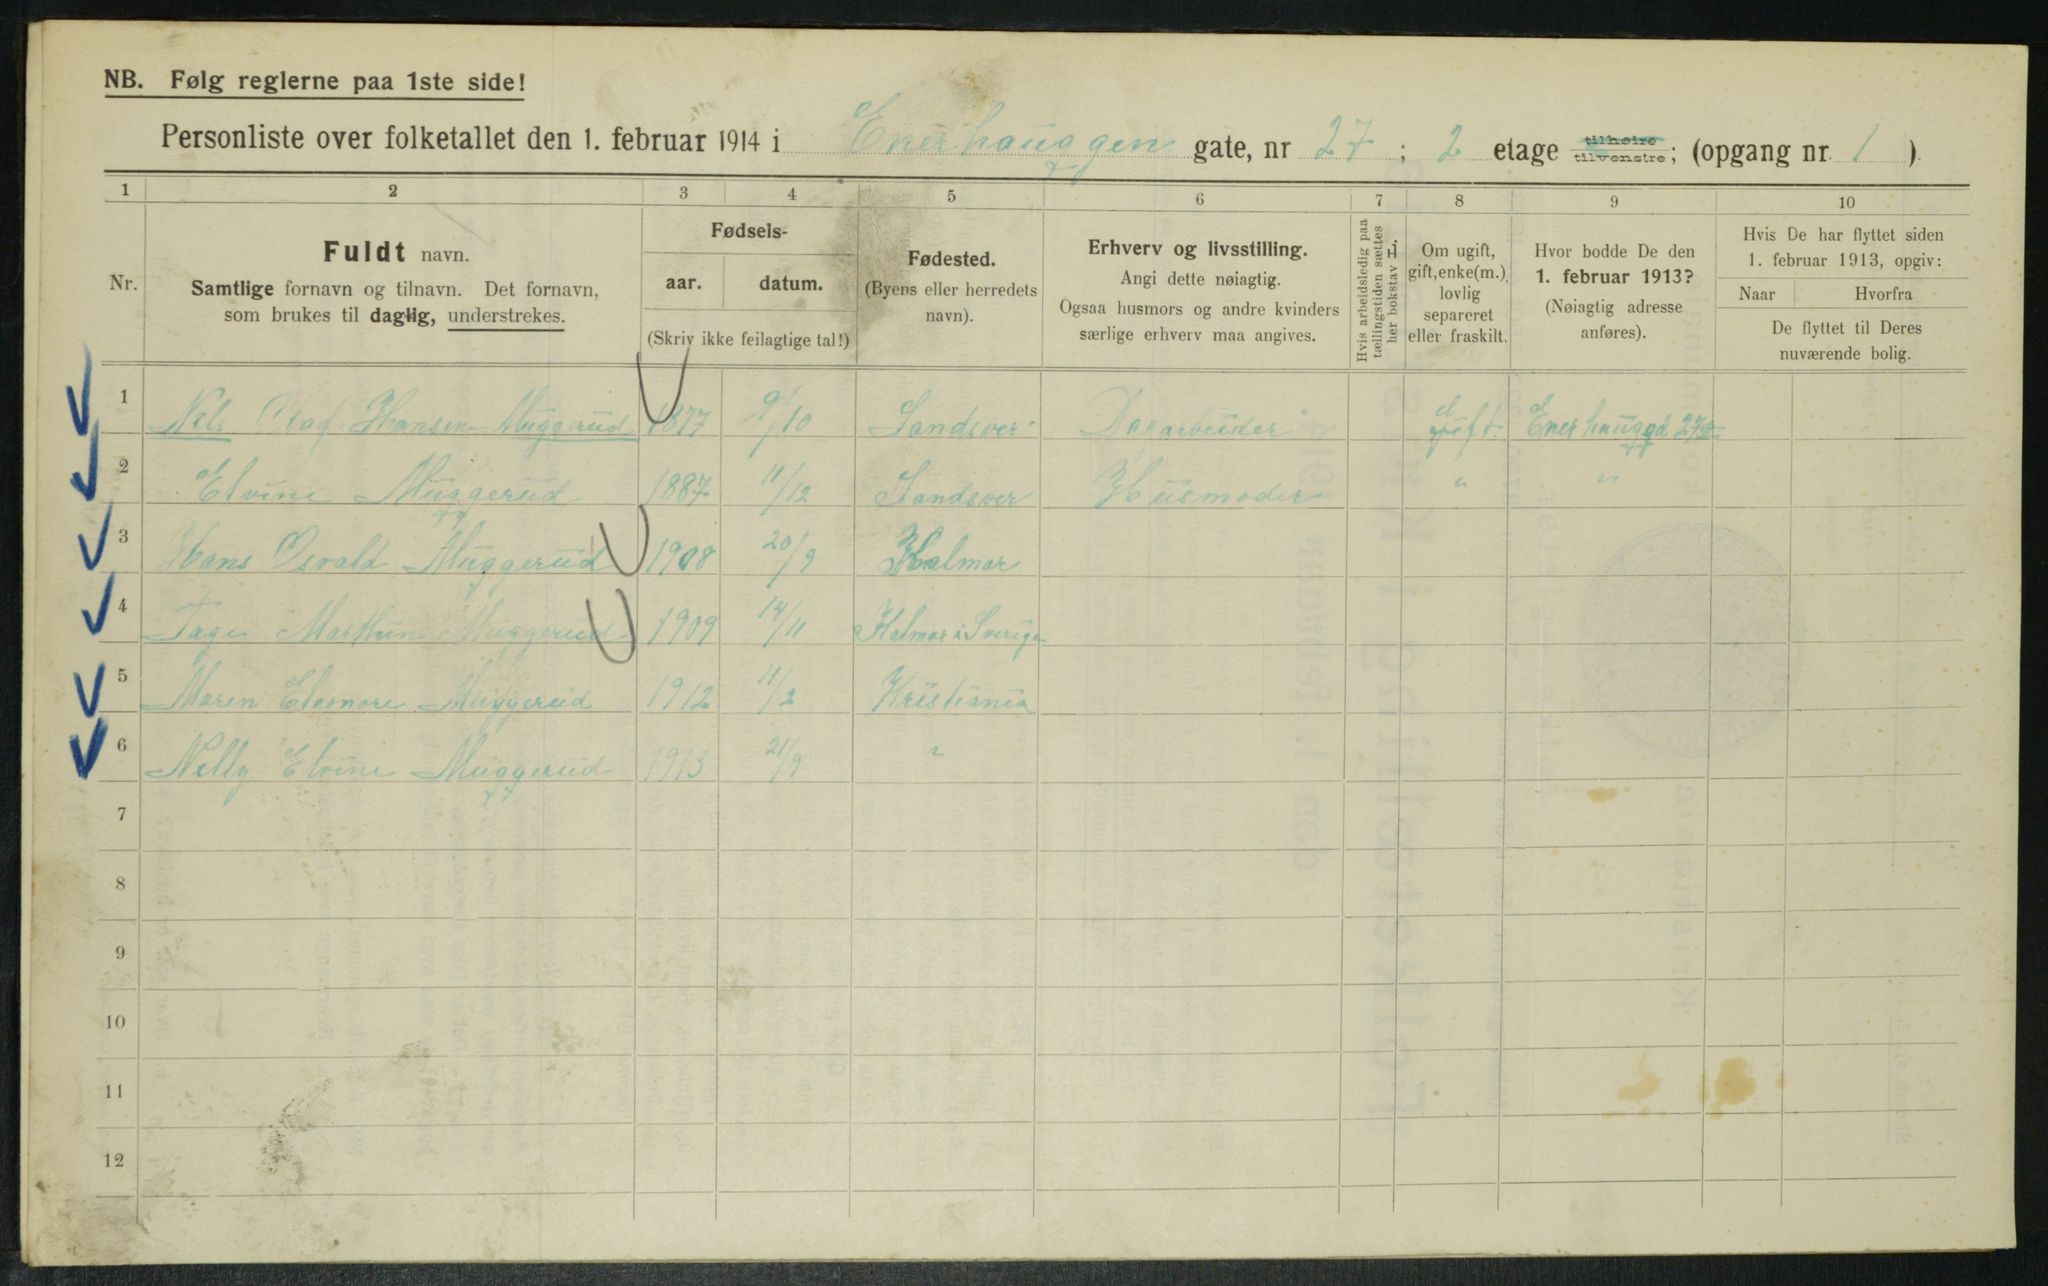 NB. Følg reglerne paa 1ste side!
Personliste over folketallet den 1. februar 1914 i Enerhauggen gate, nr 27 ; 2 etage tilhøire tilvenstre; (opgang nr. 1 ).
1 2 3 4 5 6 7 8 9 10
Nr.
Fuldt navn.
Samtlige fornavn og tilnavn. Det fornavn,
som brukes til daglig, understrekes.
Fødsels-
aar. datum.
(Skriv ikke feilagtige tal!)
Fødested.
(Byens eller herredets
navn).
Erhverv og livsstilling.
Angi dette nøiagtig.
Ogsaa husmors og andre kvinders
særlige erhverv maa angives.
Hvis arbeidsledig paa
tællingstiden sættes
her bokstav L.
Om ugift,
gift, enke(m.),
lovlig
separeret
eller fraskilt.
Hvor bodde De den
1. februar 1913?
(Nøiagtig adresse
anføres).
Hvis De har flyttet siden
1. februar 1913, opgiv:
Naar Hvorfra
De flyttet til Deres
nuværende bolig.
1 Nels Olaf Hansen Muggerud 1877 9/10 Sandsver Dagarbeider gift Enerhauggd 27
2 Elvine Muggerud 1887 11/12 Sandsver Husmoder " "
3 Hans Osvald Muggerud 1908 20/9 Kalmar
4 Tage Marthin Muggerud 1909 14/11 Kalmar i Sverige
5 Maren Eleonore Muggerud 1912 11/2 Kristiania
6 Nelly Elvine Muggerud 1913 21/9 "
7
8
9
10
11
12